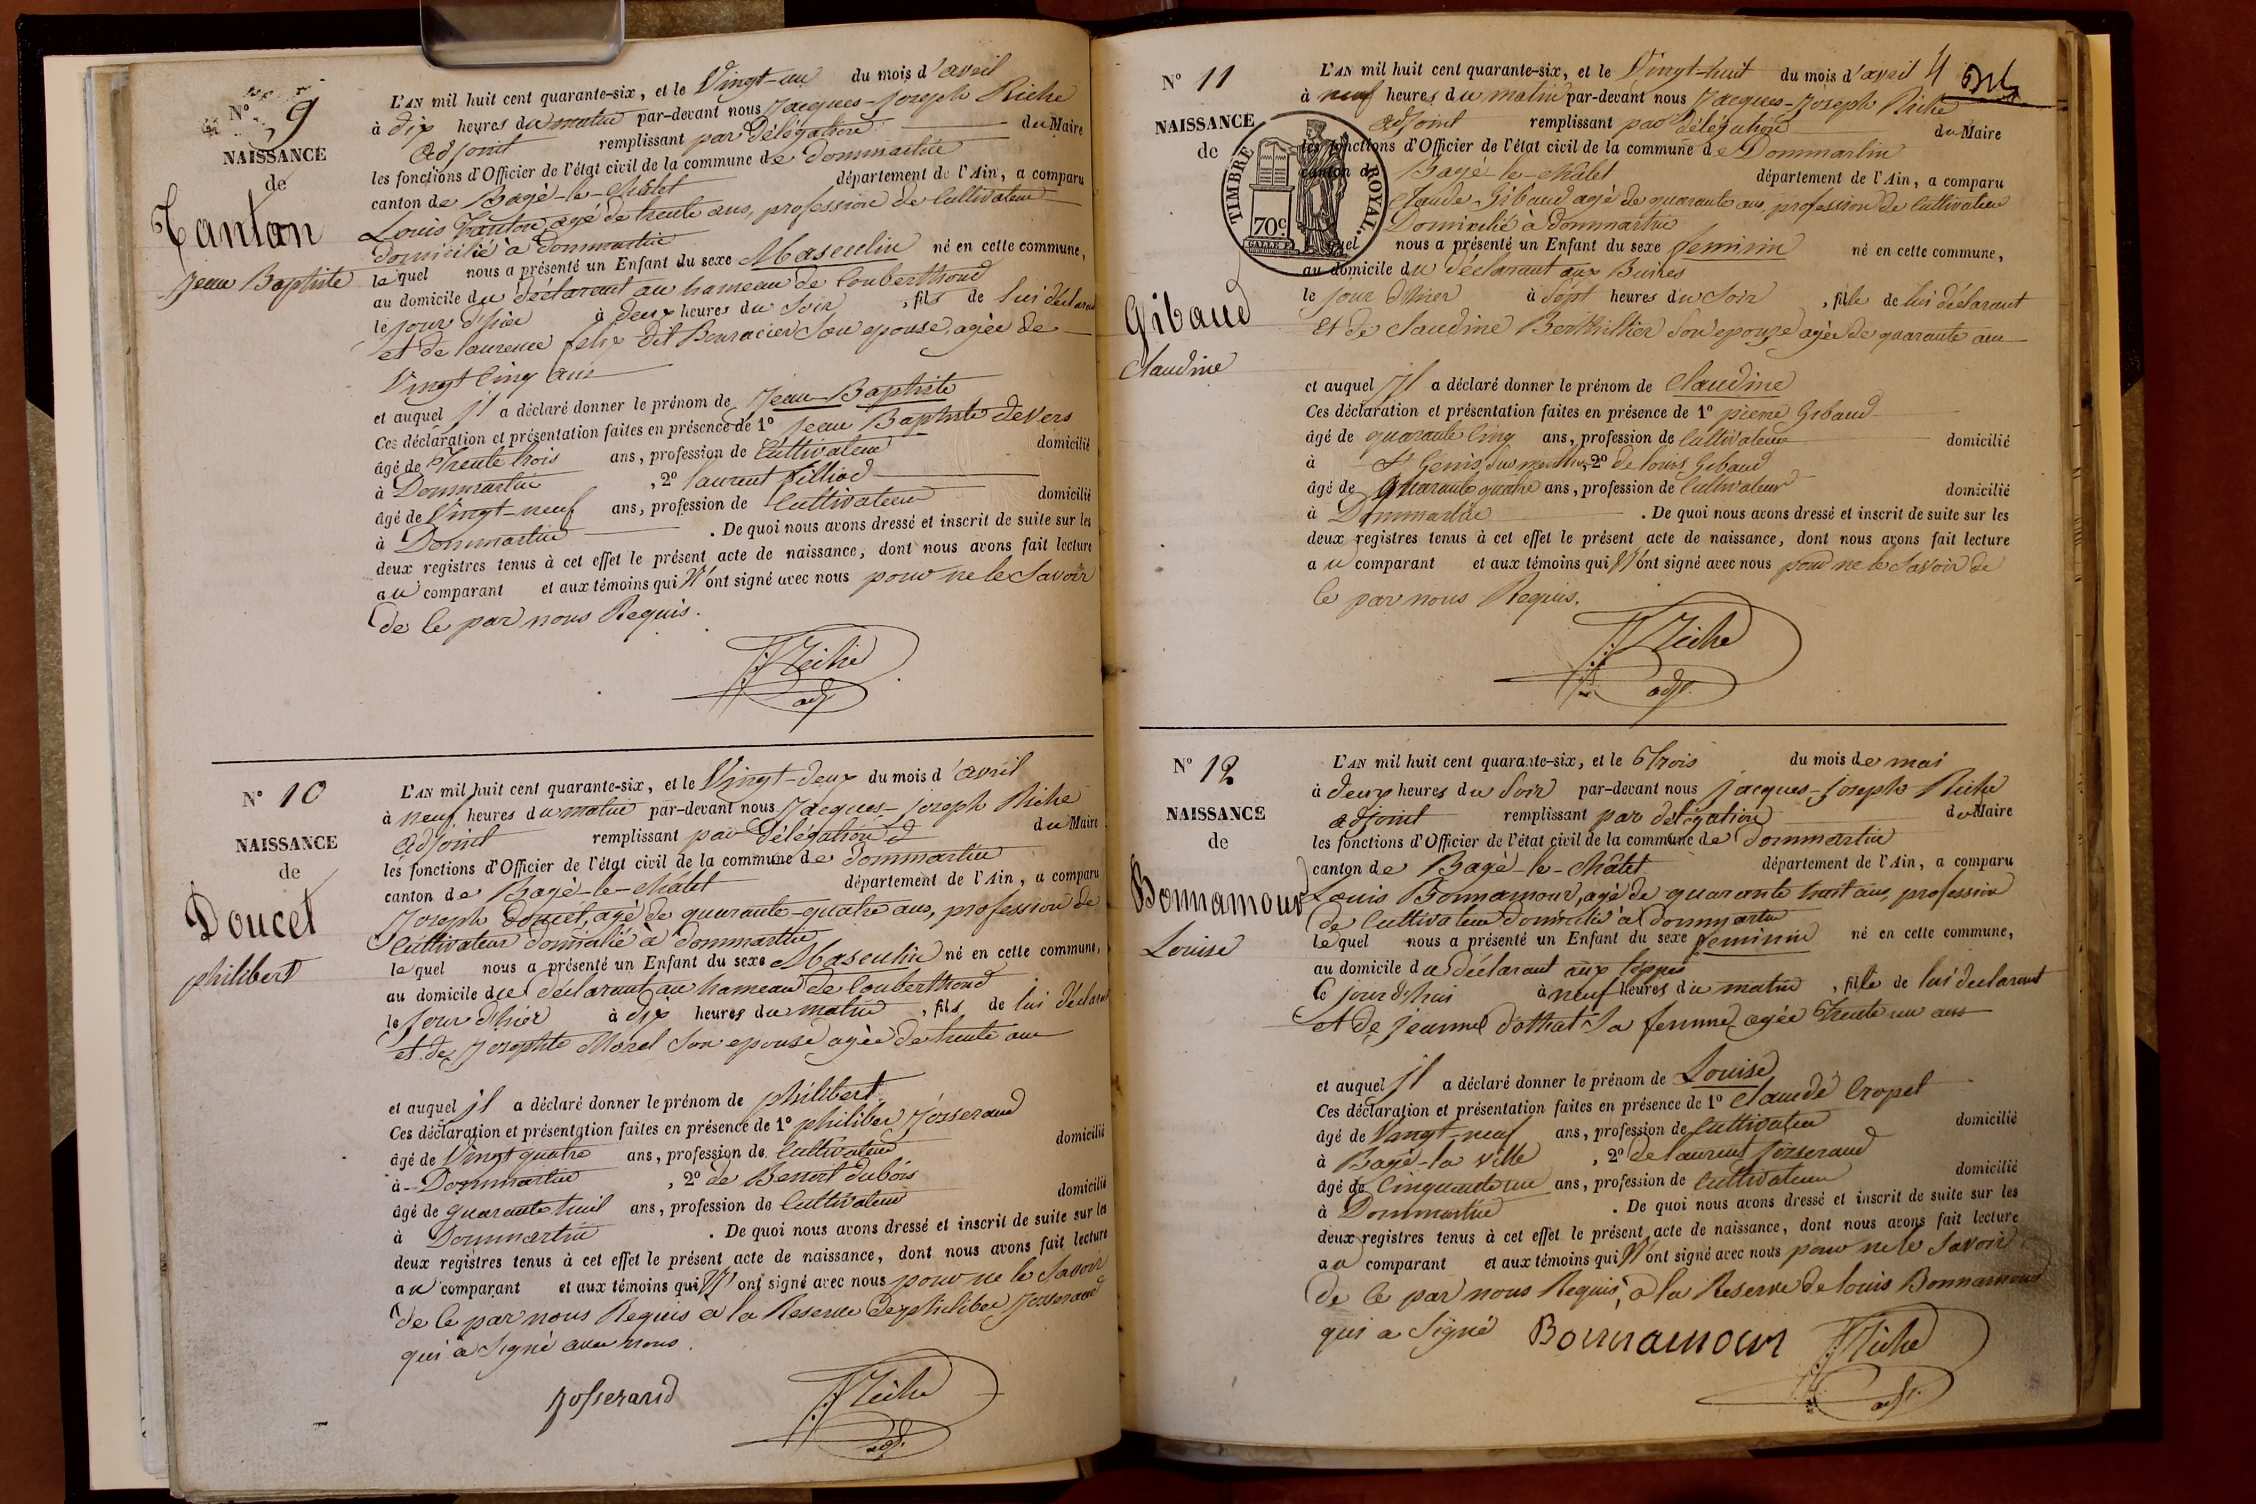 N° 9
NAISSANCE
de
Tanton
Jean Baptiste
L'AN mil huit cent quarante-six, et le Vingt-un du mois d'avril
à dix heures du matin par-devant nous Jacques-Joseph Riche
adjoint remplissant par délégation du Maire
les fonctions d'Officier de l'état civil de la commune de Dommartin
canton de Bagé-le-Châtel département de l'Ain, a comparu
Louis Tanton, agé de trente ans, profession de Cultivateur
domicilié à dommartin
lequel nous a présenté un Enfant du sexe Masculin né en cette commune,
au domicile du déclarant au hameau de Couberthoud
le jour d'hier à deux heures du Soir, fils de lui déclarant
et de laurence felix dit Bouracier Son epouse, agée de
Vingt Cinq ans
et auquel Jl a déclaré donner le prénom de Jean Baptiste
Ces déclaration et présentation faites en présence de 1° Jean Baptiste devers
âgé de Trente trois ans, profession de Cultivateur domicilié
à Dommartin, 2° laurent filliod
âgé de Vingt-neuf ans, profession de Cultivateur domicilié
à Dommartin. De quoi nous avons dressé et inscrit de suite sur les
deux registres tenus à cet effet le présent acte de naissance, dont nous avons fait lecture
au comparant et aux témoins qui N'ont signé avec nous pour ne le Savoir
de Ce par nous Requis.
JJ Riche
adj
N° 10
NAISSANCE
de
Doucet
philibert
L'AN mil huit cent quarante-six, et le Vingt-deux du mois d'avril
à neuf heures du matin par-devant nous Jacques-Joseph Riche
adjoint remplissant par délégation d du Maire
les fonctions d'Officier de l'état civil de la commune de dommartin
canton de Bagé-le-châtel département de l'Ain, a comparu
Joseph doucet, agé de quarante-quatre ans, profession de
Cultivateur domicilié à dommartin
lequel nous a présenté un Enfant du sexe Masculin né en cette commune,
au domicile du déclarant au hameau de Couberthoud
le Jour d'hier à dix heures du matin, fils de lui déclarant
et de Josephte Morel Son epouse agée de trente ans
et auquel Jl a déclaré donner le prénom de philibert
Ces déclaration et présentation faites en présence de 1° philiber Josserand
âgé de Vingt quatre ans, profession de Cultivateur domicilié
à Dommartin, 2° de Benoit dubois
âgé de quarante huit ans, profession de Cultivateur domicilié
à Dommartin. De quoi nous avons dressé et inscrit de suite sur les
deux registres tenus à cet effet le présent acte de naissance, dont nous avons fait lecture
au comparant et aux témoins qui N'ont signé avec nous pour ne le Savoir
de Ce par nous Requis a la Reserve de philiber Josserand
qui a Signé avec nous.
Josserand
JJ Riche
adj.
N° 11
NAISSANCE
de
TIMBRE ROYAL.
70c
Gibaud
Claudine
L'AN mil huit cent quarante-six, et le Vingt-huit du mois d'avril 4
à neuf heures du matin par-devant nous Jacques-Joseph Riche
adjoint remplissant par délégation du Maire
les fonctions d'Officier de l'état civil de la commune de Dommartin
canton de Bagé-le-châtel département de l'Ain, a comparu
Claude Gibaud agé de quarante ans, profession de Cultivateur
Domicilié à dommartin
lequel nous a présenté un Enfant du sexe feminin né en cette commune,
au domicile du déclarant aux Buires
le jour d'hier à Sept heures du Soir, fille de lui déclarant
Et de Claudine Berthillier Son epouse agée de quarante ans
et auquel Jl a déclaré donner le prénom de Claudine
Ces déclaration et présentation faites en présence de 1° pierre Gibaud
âgé de quarante Cinq ans, profession de Cultivateur domicilié
à St Genis Sur menthon, 2° de louis Gibaud
âgé de Quarante quatre ans, profession de Cultivateur domicilié
à Dommartin. De quoi nous avons dressé et inscrit de suite sur les
deux registres tenus à cet effet le présent acte de naissance, dont nous avons fait lecture
au comparant et aux témoins qui N'ont signé avec nous pour ne le Savoir de
Ce par nous Requis.
JJ Riche
adj.
N° 12
NAISSANCE
de
Bonnamour
Louise
L'AN mil huit cent quarante-six, et le Trois du mois de mai
à deux heures du Soir par-devant nous Jacques-Joseph Riche
adjoint remplissant par délégation du Maire
les fonctions d'Officier de l'état civil de la commune de dommartin
canton de Bagé-le-Châtel département de l'Ain, a comparu
Louis Bonnamour, agé de quarante huit ans, profession
de Cultivateur domicilié à dommartin
lequel nous a présenté un Enfant du sexe feminin né en cette commune,
au domicile du déclarant aux
le jour d'hui à neuf heures du matin, fille de lui declarant
et de jeanne dothat Sa femme, agée Trente un ans
et auquel Jl a déclaré donner le prénom de Louise
Ces déclaration et présentation faites en présence de 1° Claude Cropet
âgé de Vingt-neuf ans, profession de Cultivateur domicilié
à Bagé-la Ville, 2° de laurent Josserand
âgé de Cinquante un ans, profession de Cultivateur domicilié
à Dommartin. De quoi nous avons dressé et inscrit de suite sur les
deux registres tenus à cet effet le présent acte de naissance, dont nous avons fait lecture
au comparant et aux témoins qui N'ont signé avec nous pour ne le Savoir
de Ce par nous Requis, a la Reserve de louis Bonnamour
qui a Signé Bonnamour JJ Riche
adj.